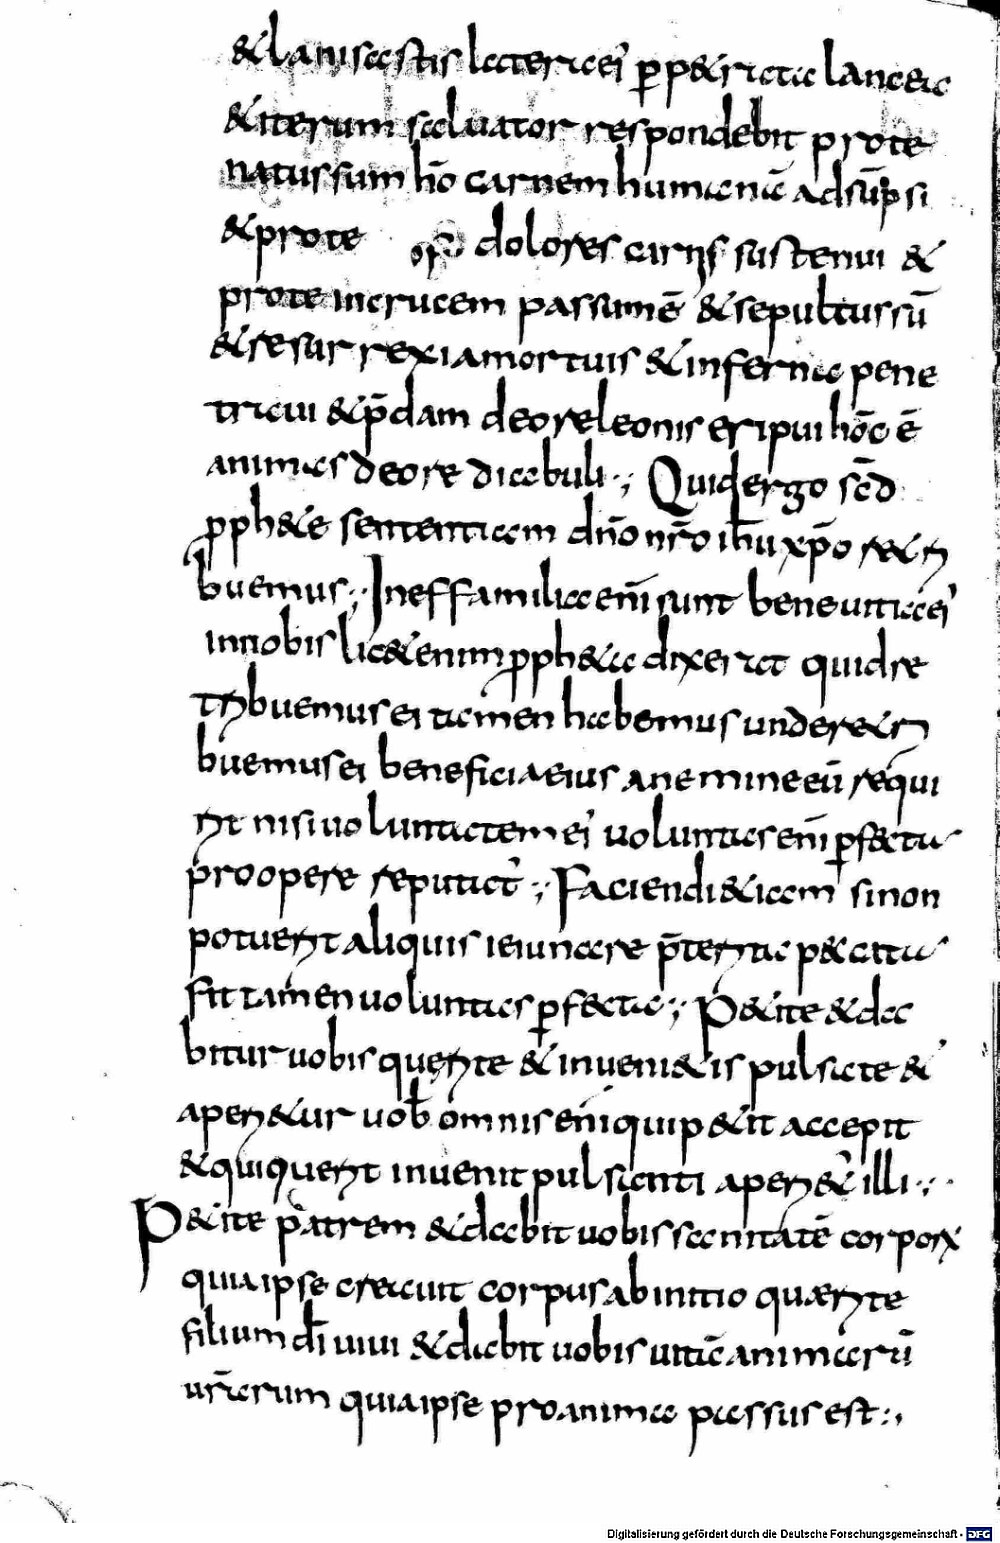 & laniscastis lateri ei' p̄p&rata lancea
& iterum saluator respondebit pro te
natus sum hō carnem humanā adsūpsi
& pro te dolores carnis sustenui &
pro te in crucem passum ē & sepultus sū
& resurrexi a mortuis & inferna pene
traui & p̄dam de ore leonis eripui hōc ē
animas de ore diabuli ·; Quid ergo scd̄
p̄ph&ae sententiam dn̄o nr̄o ih̄u xp̄o retri
buemus ·; Ineffamilia en̄i sunt bene uitia ei'
in nobis lic& enim p̄ph&a dixerat quid re
tribuemus ei tamen habemus unde retri
buemus ei beneficia eius a nemine eū requi
rit nisi uoluntatem ei' uoluntas en̄i perfecta
pro opere reputat̄ ·; Faciendi &iam si non
potuerit aliquis ieiunare p̄terita peccata
fit tamen uoluntas perfecta ·; P&ite & da
bitur uobis querite & inueni&is pulsate &
aperi&ur uob̄ omnis en̄i qui p&it accepit
& qui querit inuenit pulsanti aperi&' illi ·;
P&ite patrem & dabit uobis sanitatē corporis
quia ipse creauit corpus ab initio quærite
filium dī uiui & dabit uobis uitā animarū
ur̄arum quia ipse pro anima passus est ·;
Digitalisierung gefördert durch die Deutsche Forschungsgemeinschaft - DFG